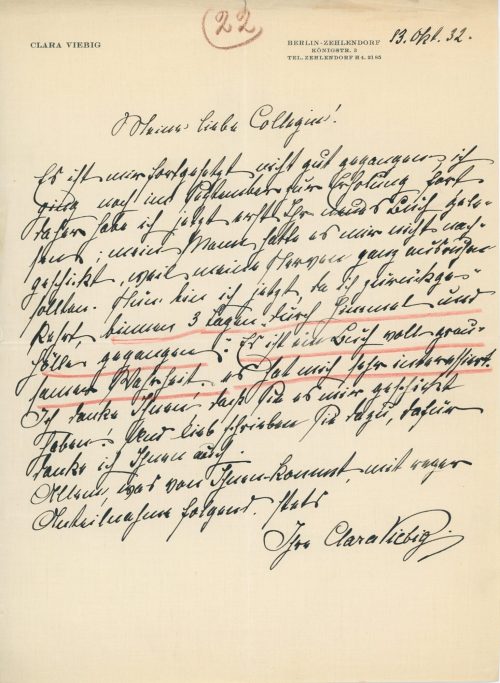 22
CLARA VIEBIG
BERLIN-ZEHLENDORF
KÖNIGSTR. 3
TEL. ZEHLENDORF H 4. 2185
13. Okt. 32.
Meine liebe Collegin!
Es ist mir fortgesetzt nicht gut gegangen, ich
ging noch im September zur Erholung fort
daher habe ich jetzt erst Ihr Buch gele-
sen; mein Mann hatte es mir nicht nach-
geschickt, weil meine Nerven ganz ausruhen
sollten. Nun bin ich jetzt, da ich zurückge-
kehrt, binnen 3 Tagen durch Himmel und
Hölle gegangen. Es ist ein Buch voll grau-
samer Wahrheit. es hat mich sehr interessiert.
Ich danke Ihnen, daß Sie es mir geschickt
haben. Und lieb schrieben Sie dazu, dafür
danke ich Ihnen auch.
Allem, was von Ihnen kommt, mit reger
Anteilnahme folgend. Stets
Ihre Clara Viebig.